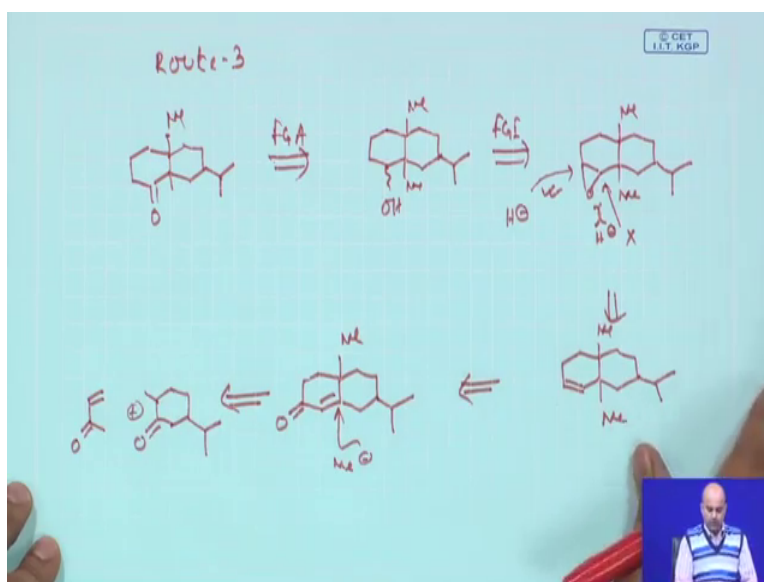 © CET
I.I.T. KGP
Route-3
Me
FGA
Me
Me
OH
FGI
Me
Me
O
H⊖
H⊖ X
O
Me
Me
Me
O
Me ⊖
O
⊕
O